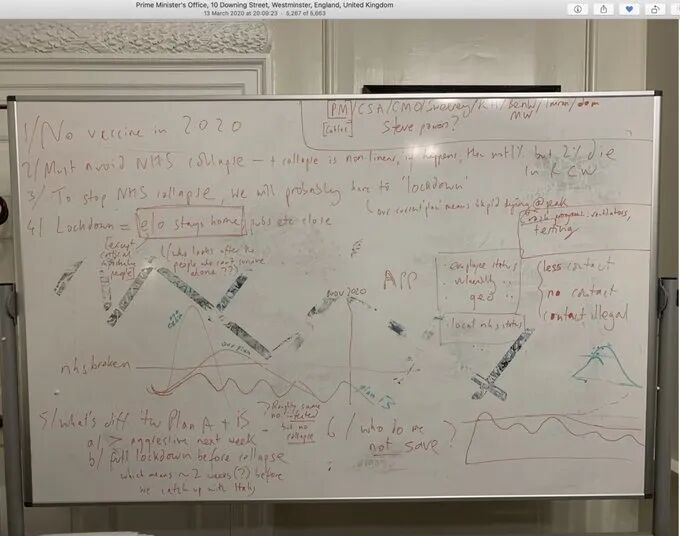 Prime Minister's Office, 10 Downing Street, Westminster, England, United Kingdom
13 March 2020 at 20:09:23 · 5,267 of 5,663
PM/CSA/CMO/
[Coffee]
Steve powis?
MW
1/ No vaccine in 2020
2/ Must avoid NHS collapse → collapse is non-linear, if happens, then not 1% but 2% die
in ICU
3/ To stop NHS collapse, we will probably have to 'lockdown'
'our current plan' means dying @ peak
4/ Lockdown = e/o stays home, pubs etc close
[except
critical
people]
Who looks after the
people who can't survive
alone??
ventilators,
testing
APP
employee status
vulnerability
geo
local nhs status
less contact
no contact
contact illegal
NOV 2020
our plan
nhs broken
plan
5/ What's diff tw Plan A + is
a/ > aggressive next week
b/ full lockdown before collapse
which means ~2 weeks(?) before
we catch up with Italy
Roughly same
no infected
but no
collapse
6/ Who do we
not save?